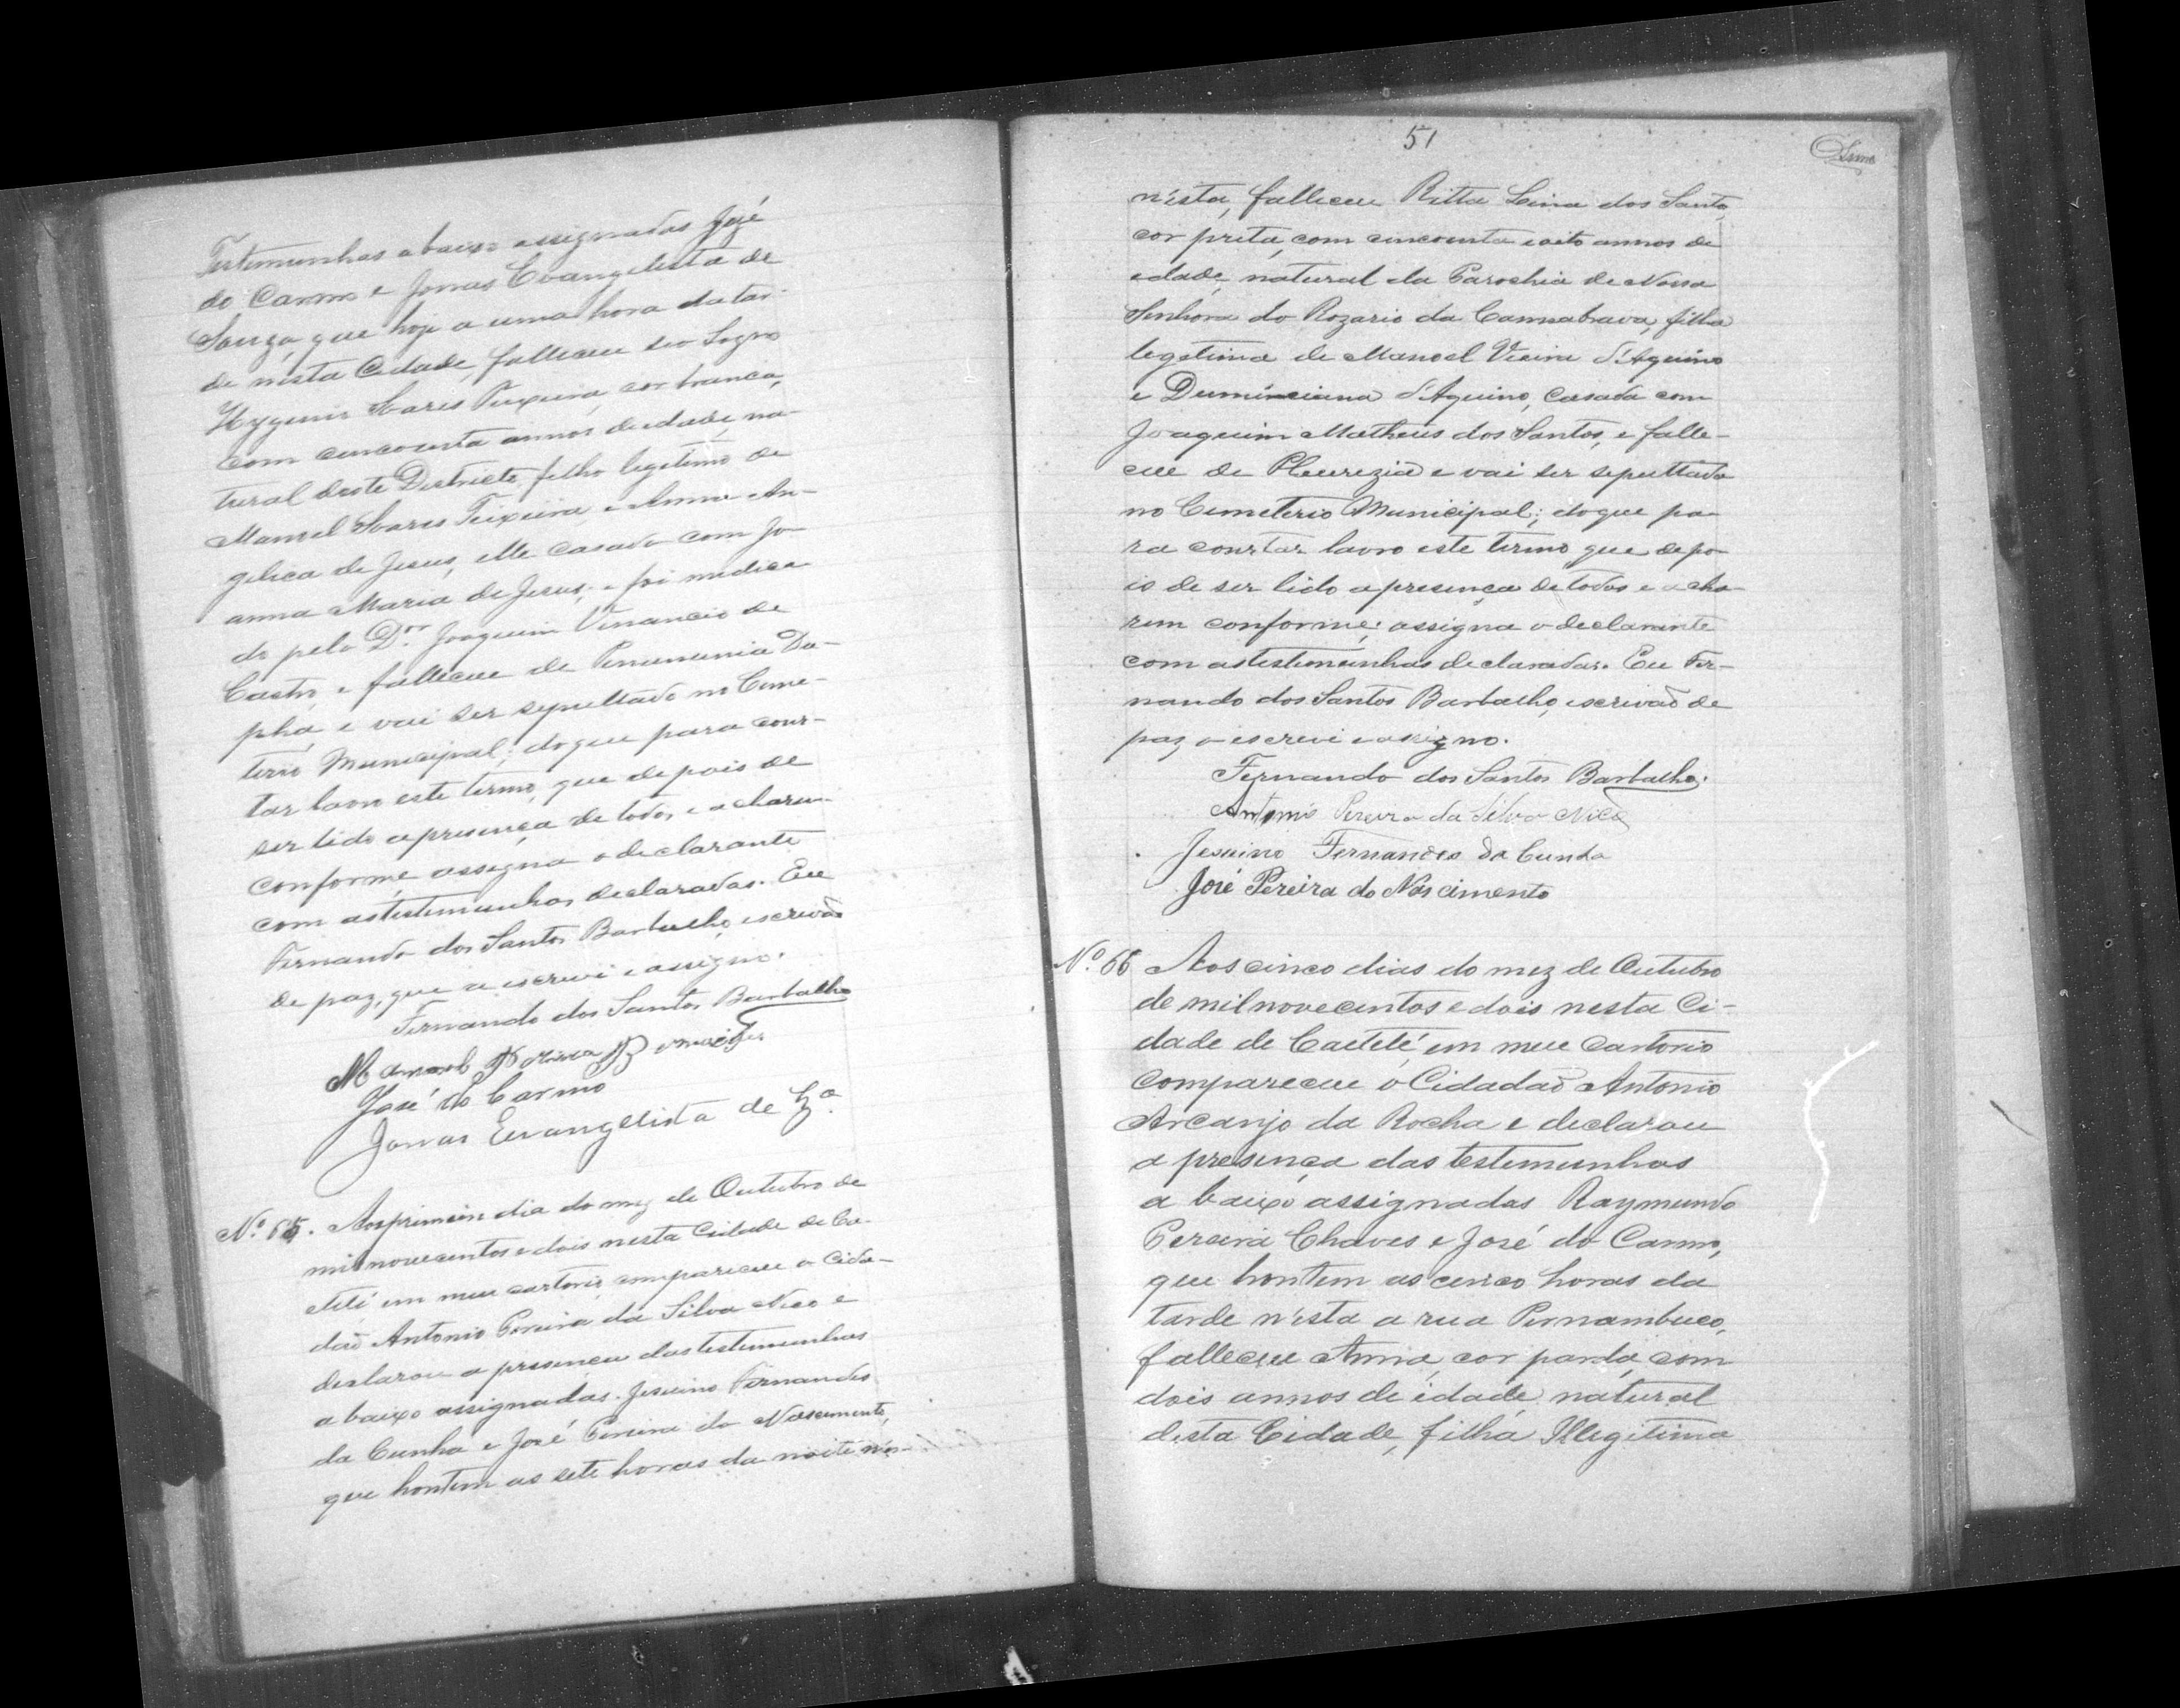 Testemunhas abaixo assignadas José
do Carmo e Jonas Evangelista de
Souza, que hoje a uma hora da tar-
de nesta Cidade, falleceu seo Sogro
Hygino Soares Teixeira, cor branca,
com cuncoenta annos de edade, na-
tural deste Districto, filho legitimo de
Manoel Soares Teixeira e Anna An-
gelica de Jesus, elle casado com Jo-
anna Maria de Jesus; e foi medica-
do pelo Dor. Joaquim Venancio de
Castro, e falleceu de Da-
pha, e vai ser sepultado no Ceme-
terio Municipal; do que para cons-
tar lavro este termo, que depois de
ser lido a presença de todos, e acharem
conforme, assigna o declarante
com as testemunhas declaradas. Eu
Fernando dos Santos Barbalho, escrivão
de paz, que a escrevi e assigno.
Fernando dos Santos Barbalho
Manoel
José do Carmo
Jonas Evangelista de Sza.
No. 65. Aos primeiro dia do mez de Outubro de
mil novecentos e dois nesta Cidade de Ca-
etité em meu cartorio, compareceu o Cida-
dão Antonio Pereira da Silva Nico e
declarou a presença das testemunhas
abaixo assignadas. Jesuino Fernandes
da Cunha e José Pereira do Nascimento,
que hontem as sete horas da noite
51
n'ésta, falleceu Ritta Lina dos Santo,
cor preta, com cincoenta e oito annos de
edade, natural da Parochia de Nossa
Senhora do Rozario da Cannabrava, filha
legitima de Manoel Vieira d'Aquino
e Duminciana d'Aquino, Casada com
Joaquim Matheus dos Santos, e falle-
ceu de Pleurezia e vai ser sepultada
no Cemeterio Municipal; do que pa-
ra constar lavro este termo que depo-
is de ser lido a presença de todos e acha-
rem conforme; assigna o declarante
com as testemunhas declaradas. Eu Fer-
nando dos Santos Barbalho, escrivão de
paz o escrevi e assigno.
Fernando dos Santos Barbalho.
Antonio Pereira da Silva Nico
Jesuino Fernandes da Cunha
José Pereira do Nascimento
No. 66 Aos cinco dias do mez de Outubro
de mil novecentos e dois nesta Ci-
dade de Caetité, em meu Cartorio
compareceu o Cidadão Antonio
Arcanjo da Rocha e declarou
a presença das testemunhas
a baixo assignadas Raymundo
Pereira Chaves e José do Carmo,
que hontem as cinco horas da
tarde n'ésta a rua Pernambuco,
falleceu Anna, cor parda, com
dois annos de idade, natural
desta Cidade, filha Illegitima